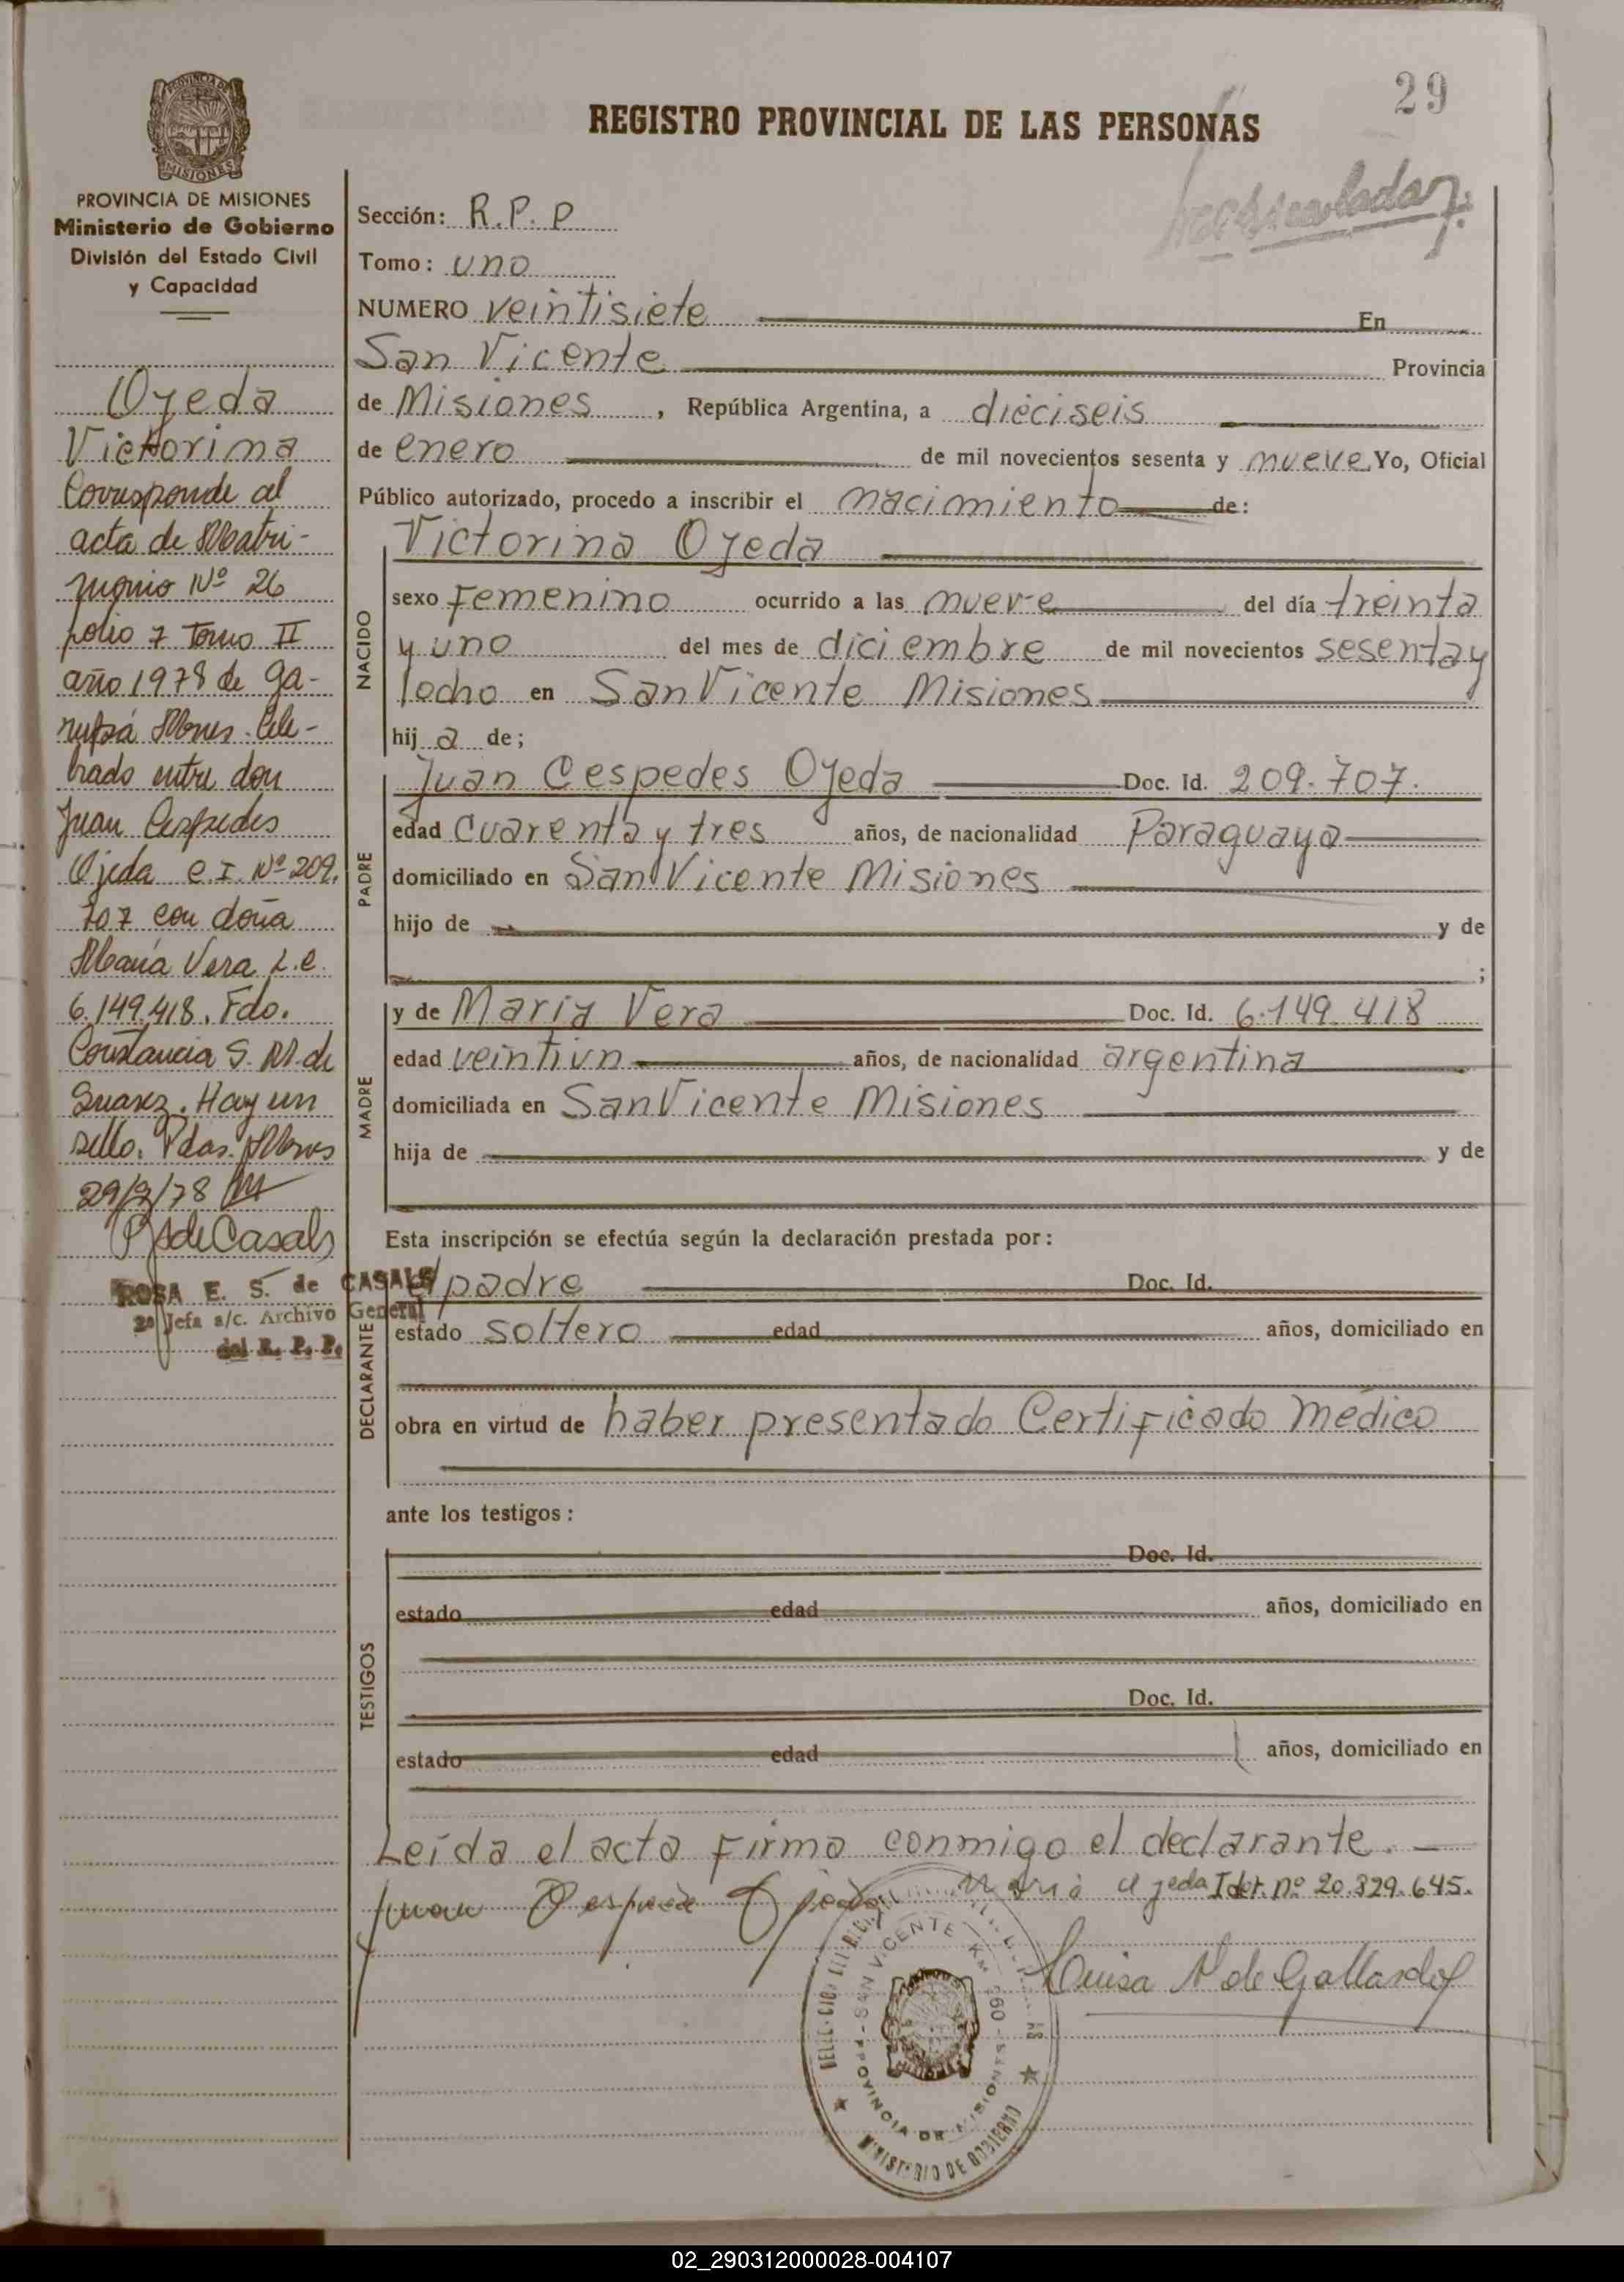 29
REGISTRO PROVINCIAL DE LAS PERSONAS
PROVINCIA DE
MISIONES
PROVINCIA DE MISIONES
Ministerio de Gobierno
División del Estado Civil
y Capacidad
Ojeda
Victorina
Corresponde al
acta de Matri-
monio Nº 26
folio 7 Tomo II
año 1978 de Ga-
ruhapá Mnes. Cele-
brado entre don
Juan Cespedes
Ojeda C.I. Nº 209.
707 con doña
María Vera L.C.
6.149.418. Fdo.
Constancia S. M. de
Suarez. Hay un
sello. Pdas. Mnes
29/9/78
R S de Casals
ROSA E. S. de CASALS
2º Jefa a/c. Archivo General
del R. P. P.
Sección: R.P.P
Tomo: uno
NUMERO veintisiete En
San Vicente Provincia
de Misiones, República Argentina, a dieciseis
de enero de mil novecientos sesenta y nueve Yo, Oficial
Público autorizado, procedo a inscribir el nacimiento de:
NACIDO
Victorina Ojeda
sexo Femenino ocurrido a las nueve del día treinta
y uno del mes de diciembre de mil novecientos sesenta y
ocho en San Vicente Misiones
hij a de;
PADRE
Juan Cespedes Ojeda Doc. Id. 209.707.
edad Cuarenta y tres años, de nacionalidad Paraguaya
domiciliado en San Vicente Misiones
hijo de y de
;
MADRE
y de Maria Vera Doc. Id. 6.149.418
edad veintiun años, de nacionalidad argentina
domiciliada en San Vicente Misiones
hija de y de
Esta inscripción se efectúa según la declaración prestada por:
DECLARANTE
el padre Doc. Id.
estado soltero edad años, domiciliado en
obra en virtud de haber presentado Certificado médico
ante los testigos:
TESTIGOS
Doc. Id.
estado edad años, domiciliado en
Doc. Id.
estado edad años, domiciliado en
Leída el acta firma conmigo el declarante.
Juan Cespede Ojeda Maria Ojeda Idet. nº 20.329.645.
Luisa N de Gallardo
SAN VICENTE KM
PROVINCIA DE MISIONES
MINISTERIO DE GOBIERNO
02_290312000028-004107